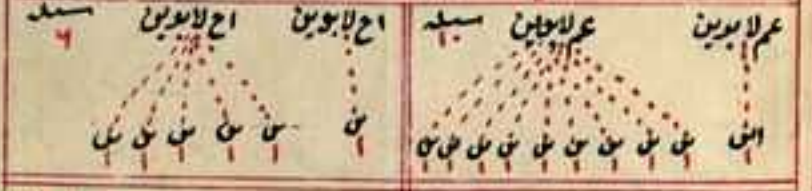 عم لابوين عم لابوين مسئله
١٠
ابن بن بن بن بن بن بن بن بن بن
١ ١ ١ ١ ١ ١ ١ ١ ١ ١
اخ لابوين اخ لابوين مسئله
٦
بن بن بن بن بن بن
١ ١ ١ ١ ١ ١